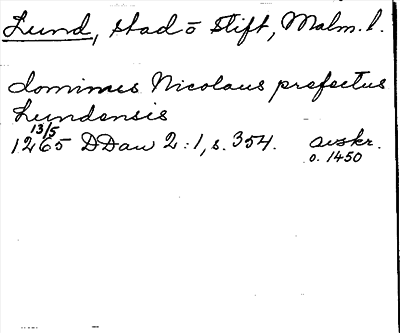 Lund, stad o stift, Malm. l.
dominus Nicolaus prefectus
Lundensis
13/5
1265 DDan 2:1, s. 354. avskr.
o. 1450